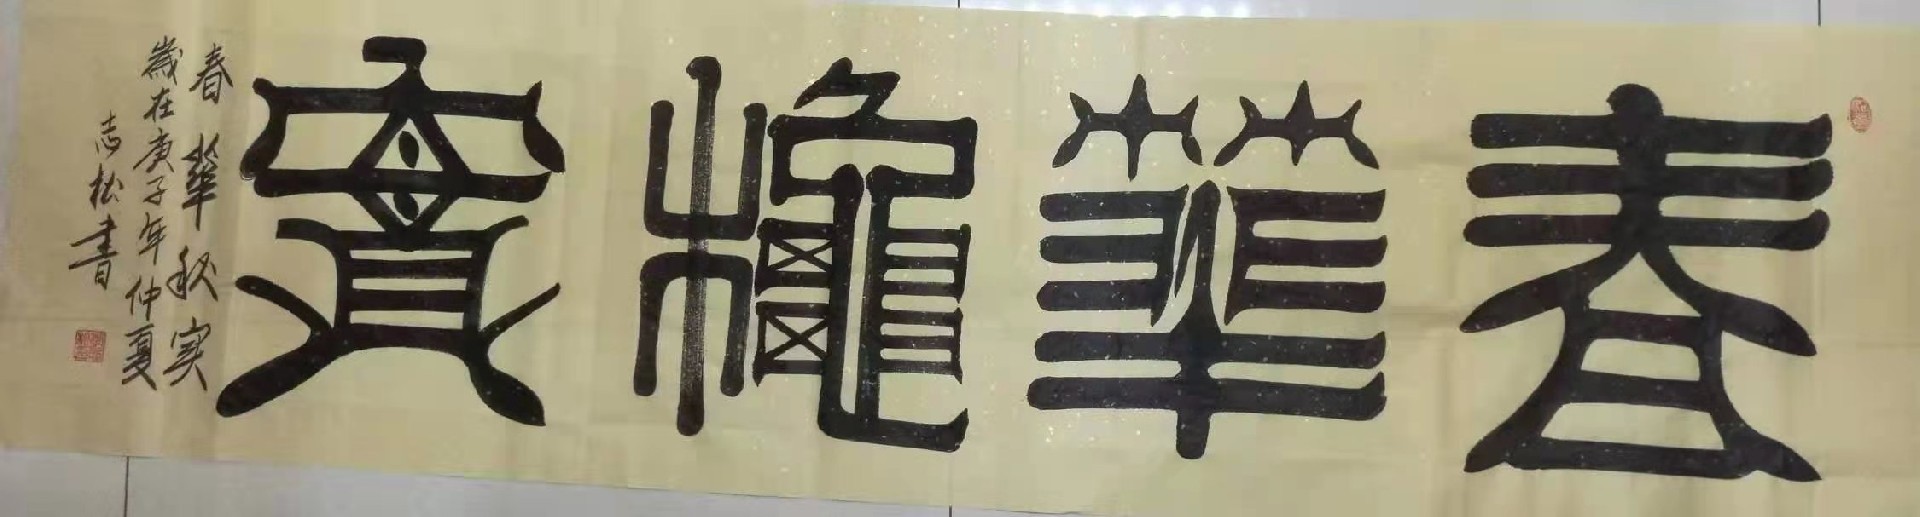 春華龝實
春華秋实
歲在庚子年仲夏
志松書